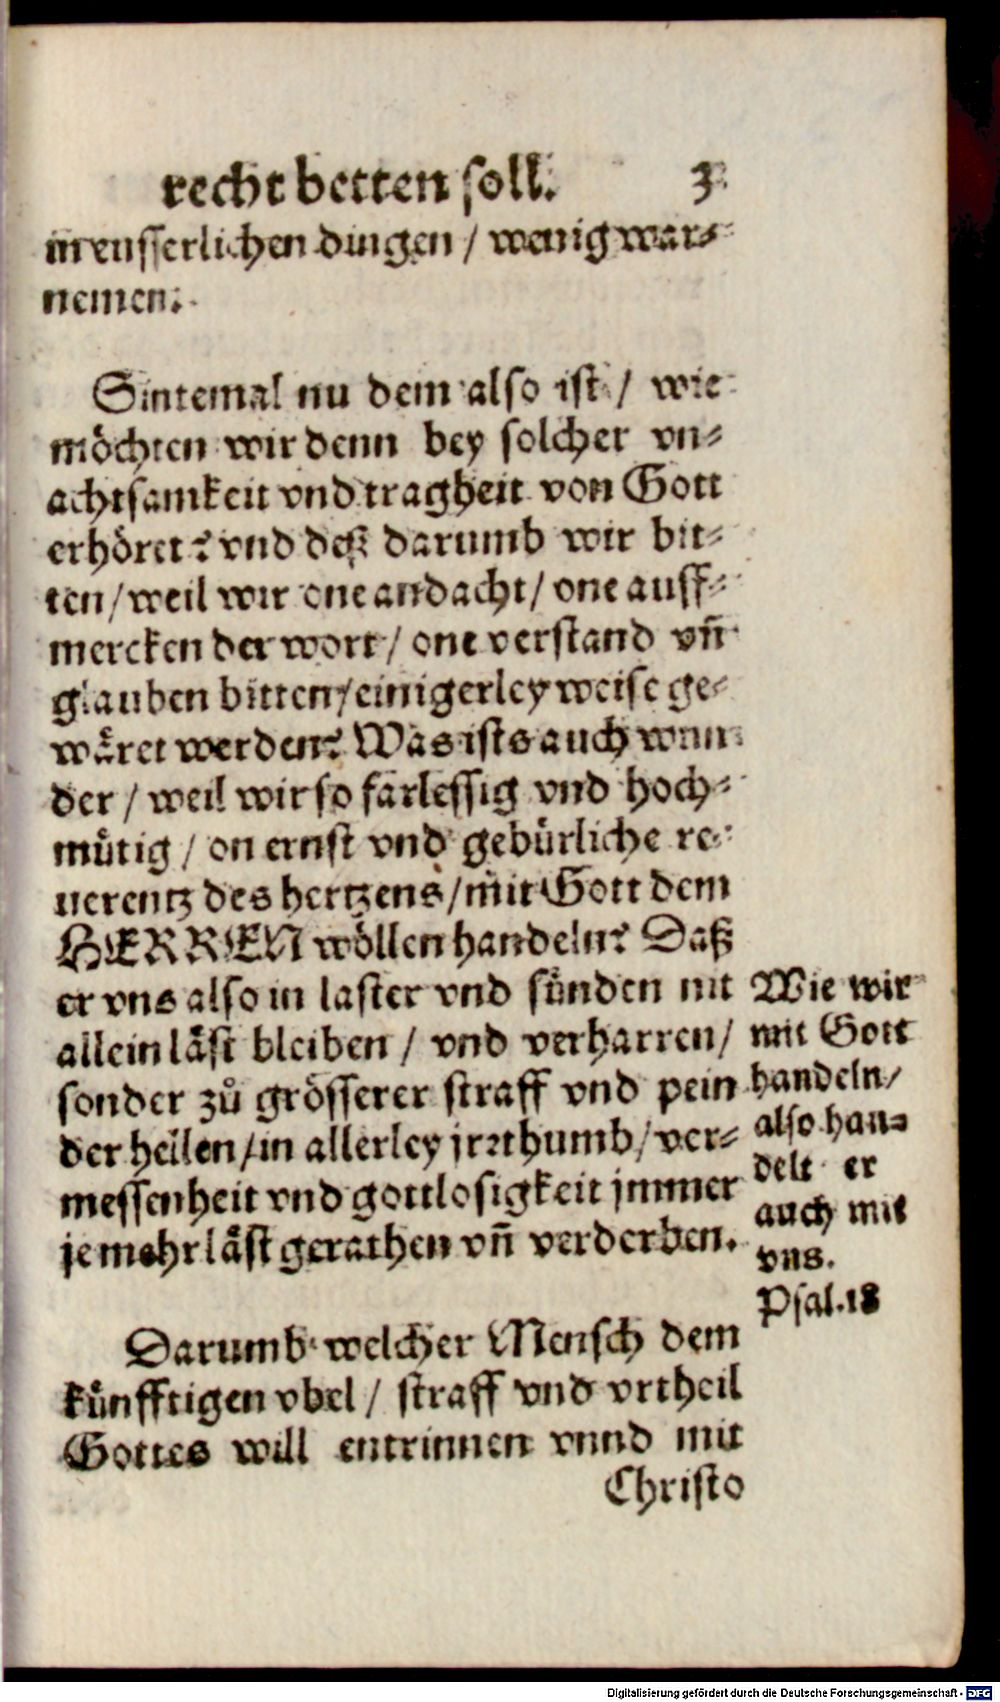 recht betten soll. 3
in eusserlichen dingen / wenig war⸗
nemen.
Sintemal nu dem also ist / wie
möchten wir denn bey solcher vn⸗
achtsamkeit vnd tragheit von Gott
erhöret? vnd deß darumb wir bit⸗
ten / weil wir one andacht / one auff⸗
mercken der wort / one verstand vñ
glauben bitten / einigerley weise ge⸗
wäret werden? Was ists auch wun⸗
der / weil wir so farlessig vnd hoch⸗
mütig / on ernst vnd gebürliche re⸗
uerentz des hertzens / mit Gott dem
HERREN wöllen handeln? Daß
er vns also in laster vnd sünden nit
allein läst bleiben / vnd verharren /
sonder zů grösserer straff vnd pein
der hellen / in allerley jrrthumb / ver⸗
messenheit vnd gottlosigkeit jmmer
je mehr läst gerathen vñ verderben.
Wie wir
mit Gott
handeln /
also han⸗
delt er
auch mit
vns.
Psal. 18
Darumb welcher Mensch dem
künfftigen vbel / straff vnd vrtheil
Gottes will entrinnen vnnd mit
Christo
Digitalisierung gefördert durch die Deutsche Forschungsgemeinschaft - DFG